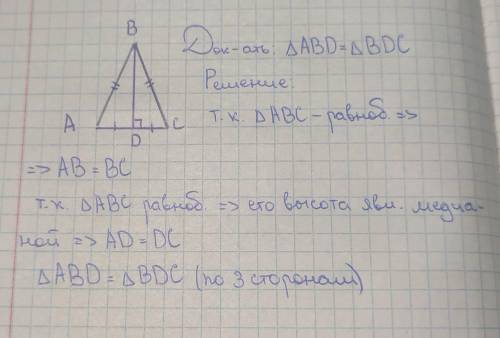 B
Док-ать: △ABD=△BDC
Решение:
A
D
C
т.к. △ABC – равноб. =>
=> AB = BC
т.к. △ABC равноб. => его высота явл. медиа-
ной => AD = DC
△ABD = △BDC (по 3 сторонам)